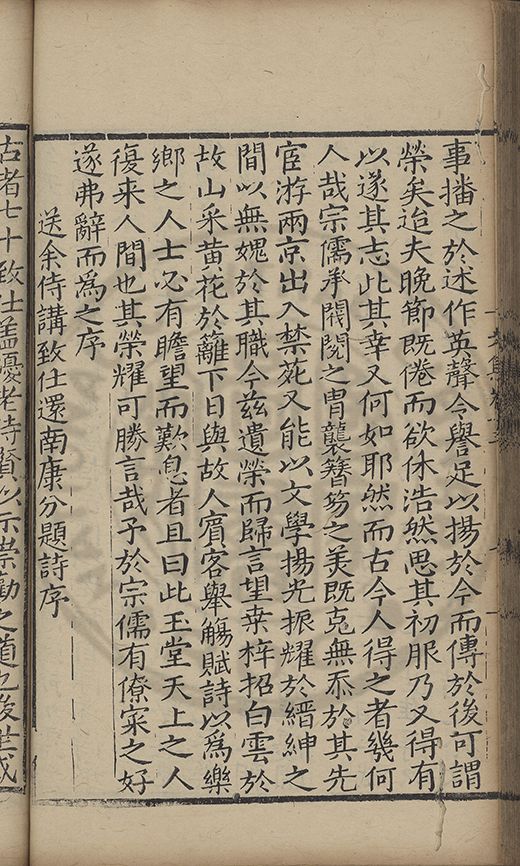 事播之於述作英聲令譽足以揚於今而傳於後可謂
榮矣迨夫晚節既倦而欲休浩然思其初服乃又得有
以遂其志此其幸又何如耶然而古今人得之者幾何
人哉宗儒承閥閱之胄襲簪笏之美既克無忝於其先
宦游兩京出入禁苑又能以文學揚光振耀於縉紳之
間以無媿於其職今茲遺榮而歸言望桑梓招白雲於
故山采黃花於籬下日與故人賓客舉觴賦詩以為樂
鄉之人士必有瞻望而歎息者且曰此玉堂天上之人
復来人間也其榮耀可勝言哉予於宗儒有僚寀之好
遂弗辭而為之序
送余侍講致仕還南康分題詩序
古者七十致仕盖優老待賢以示崇勸之道也後世或